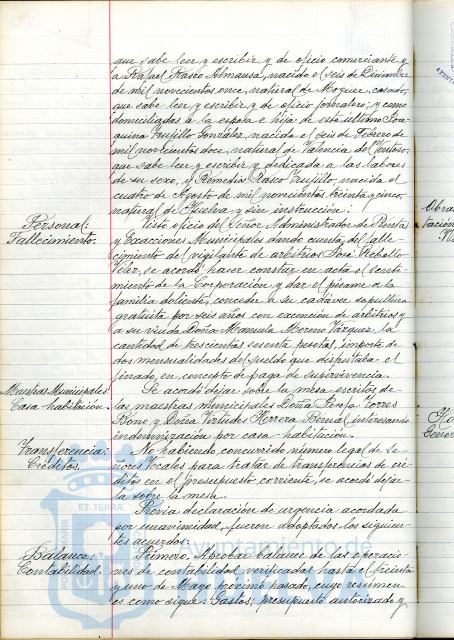 que sabe leer y escribir y de oficio comerciante y
a Rafael Rasco Almansa, nacido el seis de Diciembre
de mil novecientos once, natural de Moguer, casado,
que sabe leer y escribir y de oficio jornalero, y como
domiciliadas a la esposa e hija de este último Joa-
quina Trujillo González, nacida el seis de Febrero de
mil novecientos doce, natural de Valencia del Ventoso,
que sabe leer y escribir y dedicada a las labores
de su sexo, y Remedios Rasco Trujillo, nacida el
cuatro de Agosto de mil novecientos treinta y cinco,
natural de Huelva y sin instrucción.
Personal:
Fallecimiento.
Visto oficio del Señor Administrador de Rentas
y Exacciones Municipales dando cuenta del falle-
cimiento del vigilante de arbitrios José Rebollo
Vélez, se acordó hacer constar en acta el senti-
miento de la Corporación y dar el pésame a la
familia doliente, conceder a su cadáver sepultura
gratuita por seis años con exención de arbitrios y
a su viuda Doña Manuela Moreno Vázquez, la
cantidad de trescientas sesenta pesetas, importe de
dos mensualidades del sueldo que disfrutaba el
finado, en concepto de paga de supervivencia.
Maestras Municipales
Casa-habitación.
Se acordó dejar sobre la mesa escritos de
las maestras municipales Doña Torres
Bono y Doña Virtudes Herrera Bernal interesando
indemnización por casa-habitación.
Transferencia:
Créditos.
No habiendo concurrido número legal de Se-
ñores Vocales para tratar de transferencias de cré-
ditos en el presupuesto corriente, se acordó dejar-
la sobre la mesa.
Previa declaración de urgencia acordada
por unanimidad, fueron adoptados los siguien-
tes acuerdos:
Balance:
Contabilidad.
Primero. Aprobar balance de las operacio-
nes de contabilidad verificadas hasta el treinta
y uno de Mayo próximo pasado, cuyo resumen
es como sigue: Gastos; presupuesto autorizado y